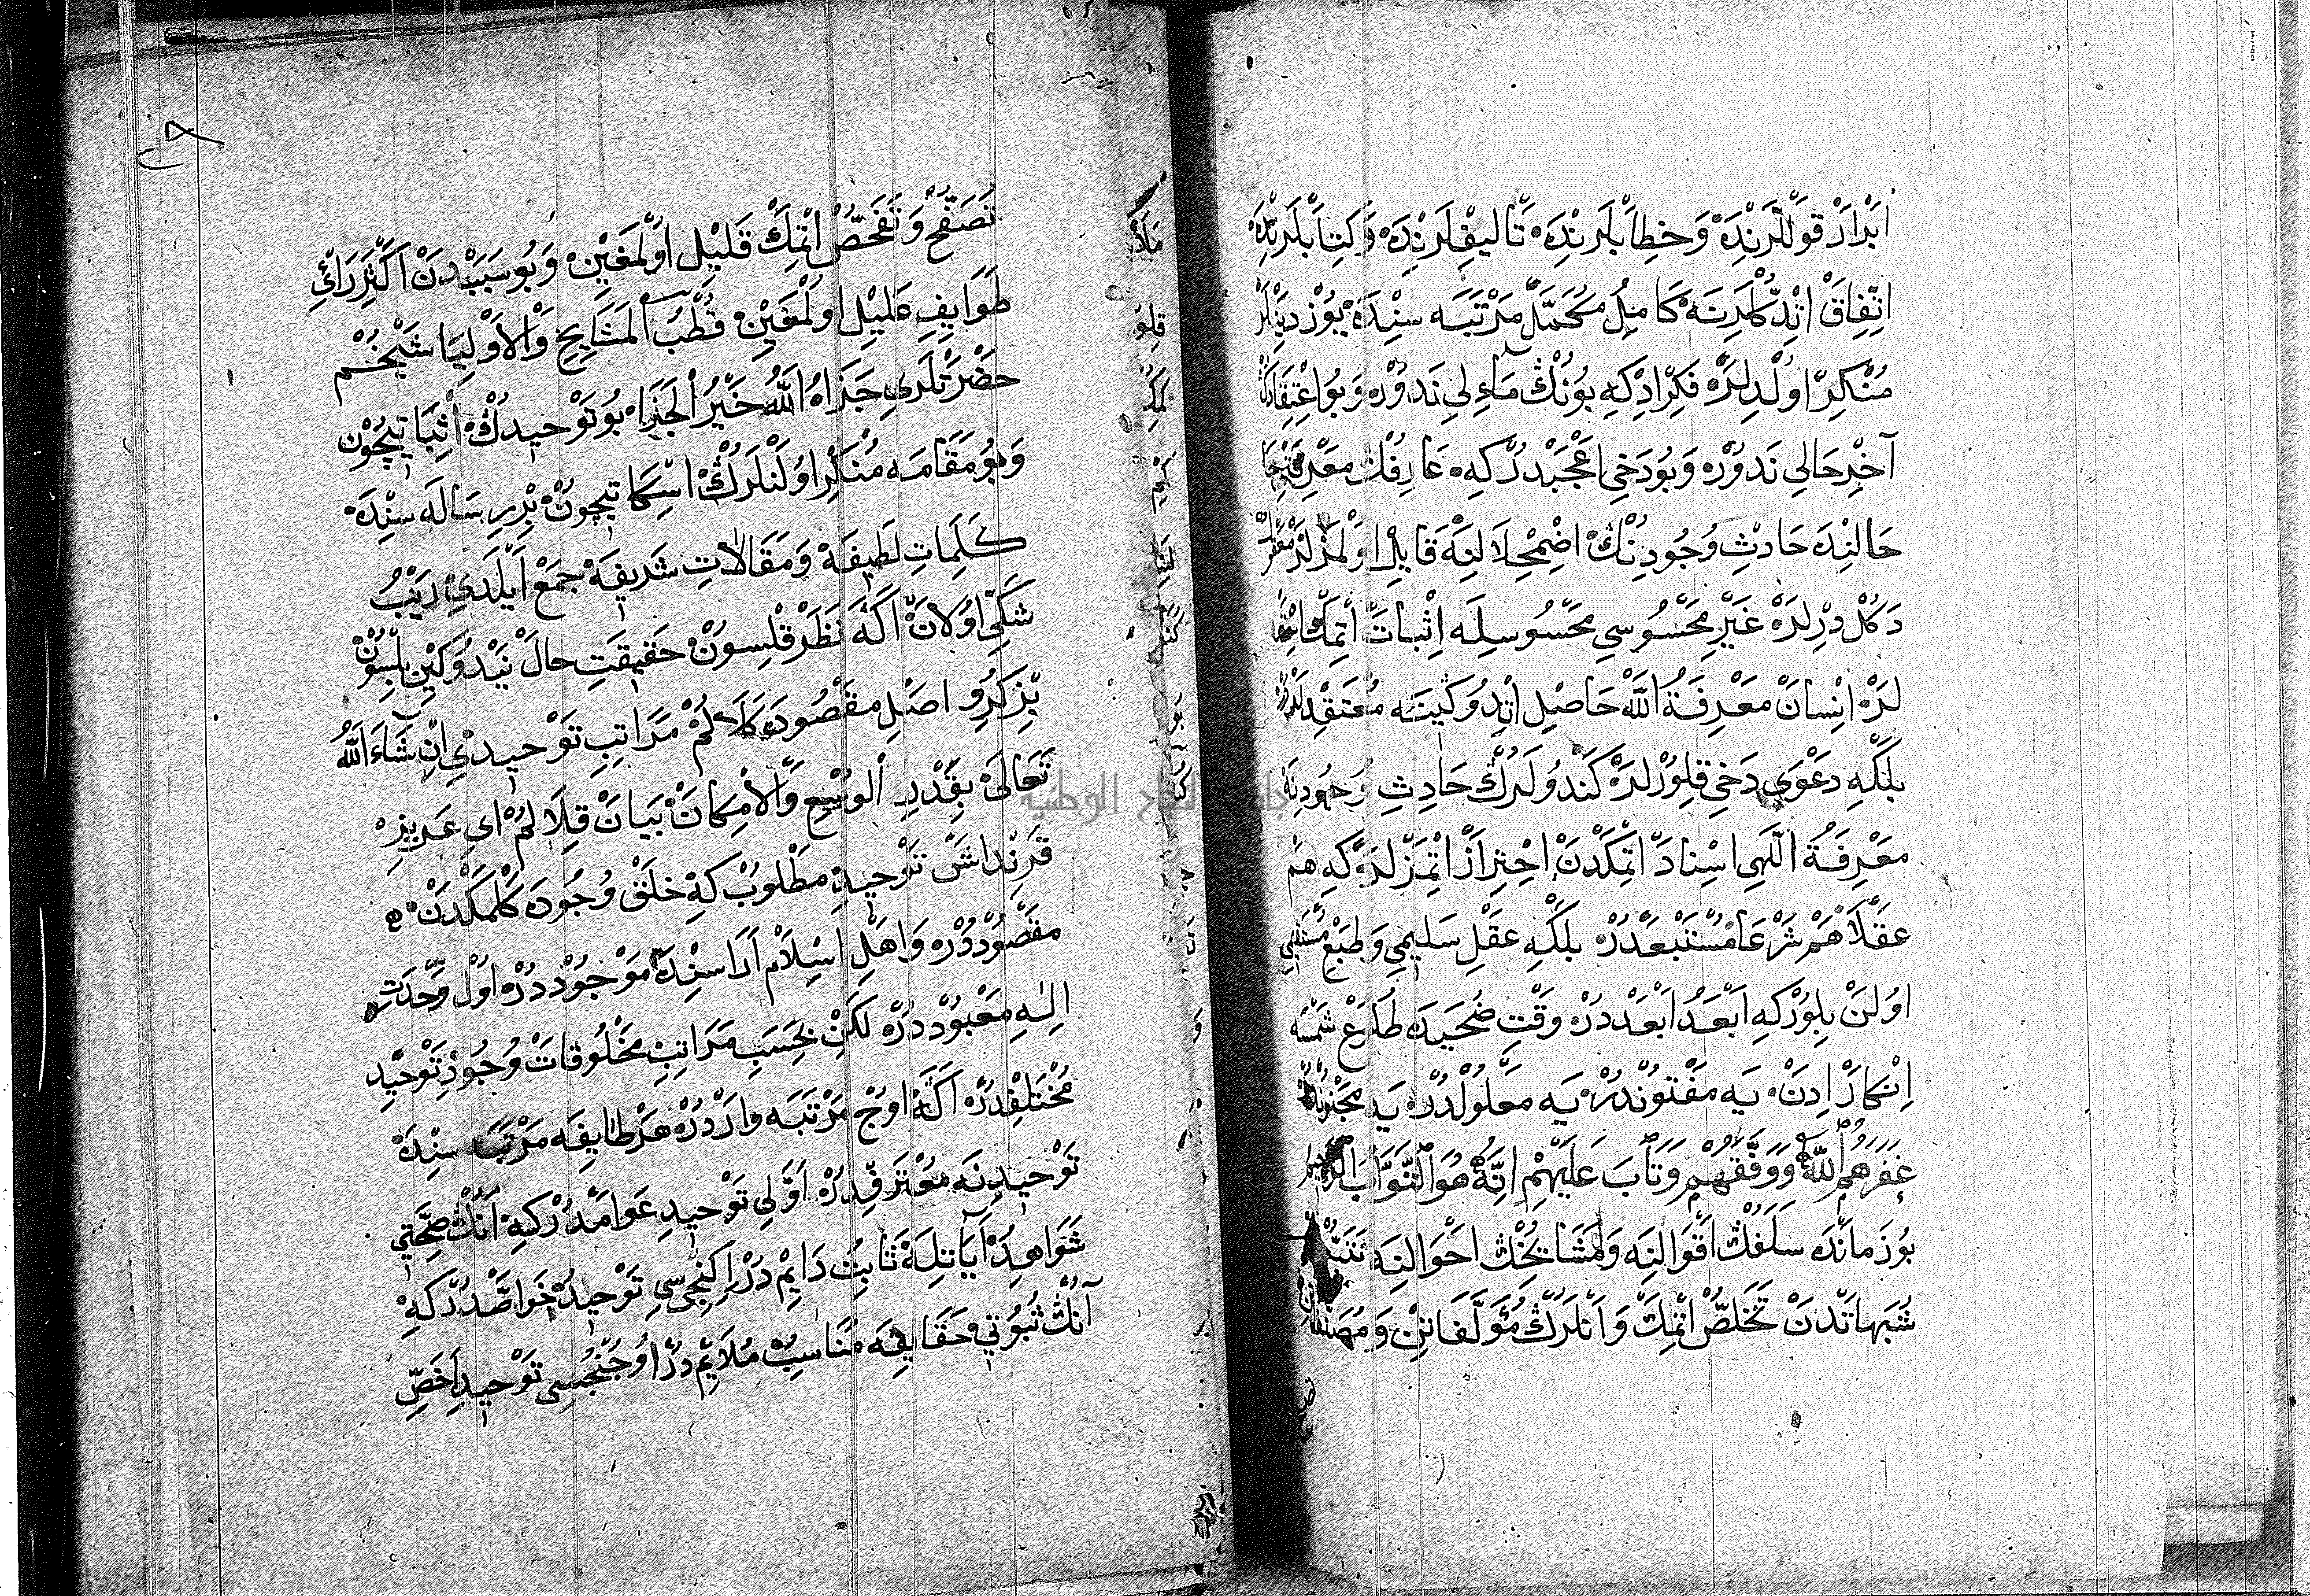 اَبْرَارْ قَوْللَّرِنْدَه وَخِطَابْلَرِنْدَه تَالِيفْلَرِنْدَه وَكِتَابْلَرِنْدَه
اتِّفَاقْ اتْدِكْلَرِنَه كَامِلْ مُكَمَّلْ مَرْتَبَه سِنْدَه يُوزْ
مُنْكِرْ اوُلْدِلَرْ فِكِرْ ادِكِه بُونُڭْ مَاءِلِي نَدُوُرْ وَبُو
آخِرْ حَالِي نَدُوُرْ وَبُودَخِي اَعْجَبْدُرْكِه عَارِفُڭْ
حَالنِدَه حَادِثِ وُجُودِنُڭْ اضْمِحْلَالِنَه قَابِلْ اوُلْمَزْلَرْ
دَكُلْدِرْلَرْ غَيْرِ مَحْسُوسِي مَحْسُوسِيلَه اِثْبَاتْ اتْمِكْ
لَرْ انْسَانْ مَعْرِفَةُ اللّٰه حَاصِلْ اتْدُوكِنَه مُعْتَقِدْلَرْ
بَلْكِه دَعْوَى دَخِي قِلُورْلَرْ كَنْدُولَرُڭْ حَادِثِ وُجُودِنَه
مَعْرِفَةُ الٰهَي اسْنَادْ اتْمِكْدَنْ احْتِرَازْ اتْمَزْلَرْكِه هَمْ
عَقْلًا هَمْ شَرْعًا مُسْتَبْعَدْدُرْ بَلْكِه عَقْلِ سَلِيمِ وَطَبْعِ
اوُلَنْ بِلُورْكِه اَبْعَدُ اَبْعَدْدُرْ وَقْتِ ضُحَيَدَه طُلُوعِ شَمْسَه
اِنْكَارْ اِدَنْ يَه مَفْتُونْدُرْ يَه مَعْلُولْدُرْ يَه مَجْنُونْدُرْ
غَفَرَهُمُ اللّٰهُ وَوَفَّقَهُمْ وَتَابَ عَلَيْهِمْ اِنَّهُ هُوَ التَّوَّابُ
بُو زَمَانْدَه سَلَفُڭْ اَقْوَالِنَه وَمَشَايِخُڭْ احْوَالِنَه
شُبَهَاتْدَنْ تَخَلُّصْ اتْمِكْ وَاَنْلَرُڭْ مُؤَلَّفَاتِنْ
تَصَفُّحْ وَتَفَحُّصْ اتْمِكْ قَلِيلْ اوُلْمَغِينْ وَبُو سَبَبْدَنْ اَكْثَرِ رَأيِ
طَوَايِفِ عَلِيلْ اوُلْمَغِينْ قُطْبُ الْمَشَايِخِ وَالْاَوْلِيَا شَيْخُمْ
حَضْرَتْلَرِي جَزَاهُ اللّٰهُ خَيْرُ الْجَزَاء بُو تَوْحِيدُڭْ اَثْبَاتِيچُونْ
وَبُو مَقَامَه مُنْكِرْ اوُلَنْلَرُڭْ اسْكَاتِيچُونْ بِرْ رِسَالَه سِنْدَه
كَلِمَاتِ لَطِيفَه وَمَقَالَاتِ شَرِيفَه جَمْعْ اَيْلَدِي رَيْبُ
شَكِّي اوُلَانْ اَكَه نَظَرْ قِلْسُونْ حَقِيقَتِ حَالْ نَيْدُوكِينْ بِلْسُونْ
بِزْ كَرُو اصْلِ مَقْصُودَه كَلَه لُمْ مَرَاتِبِ تَوْحِيدِي اِنْ شَاءَ اللّٰهُ
تَعَالَى بِقَدْرِ الْوُسْعِ وَالْاِمْكَانْ بَيَانْ قِلَالُمْ اي عَزِيزْ
قَرِنْدَاشْ تَوْحِيدِ مَطْلُوبْ كِه خَلْقْ وُجُودَه كَلْمَكْدَنْ
مَقْصُودْدُرْ وَاهْلِ اسْلَامْ اَرَاسِنْدَه مَوْجُودْدُرْ اوُلْ وَحْدَتِ
الٰهِ مَعْبُودْدُرْ لٰكِنْ بِحَسَبِ مَرَاتِبِ مَخْلُوقَاتْ وُجُودِ تَوْحِيدِ
مُخْتَلِفْدُرْ اَكَّه اوُجْ مَرْتَبَه وَارْدُرْ هَرْ طَايِفَه مَرْتَبَه سِنْدَه
تَوْحِيدِنَه مُعْتَرِفْدُرْ اَوَّلِي تَوْحِيدِ عَوَامْدُرْكِه اَنُڭْ صِحَّتِي
شَوَاهِدْ آيَاتِلَه ثَابِتْ دَايِمْدُرْ اكِنْجِي سِي تَوْحِيدْ خَوَاصْدُرْكِه
آنُڭْ ثُبُوتِي حَقَايِقَه مُنَاسِبْ مُلَايِمْدُرْ اوُجُنْجُسِي تَوْحِيدِ اَخَصِّ
جامعة النجاح الوطنية